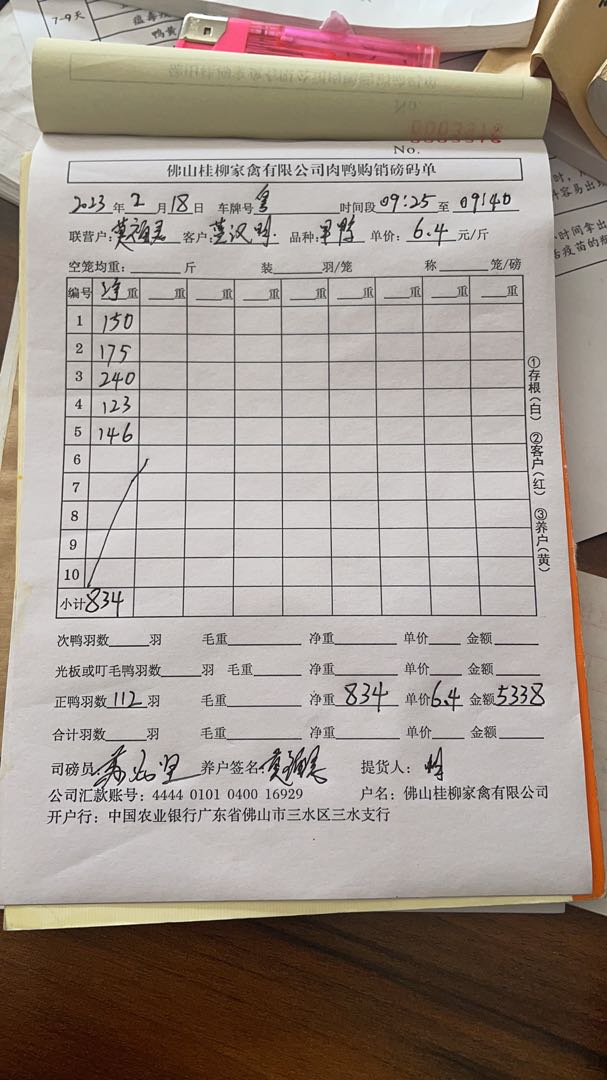 7-9天
No.
0003318
佛山桂柳家禽有限公司肉鸭购销磅码单
2023年2月18日 车牌号 粤 时间段 09:25 至 09:40
联营户: 客户: 莫汉 品种: 单价: 6.4 元/斤
空笼均重: 斤 装 羽/笼 称 笼/磅
编号 净重 重 重 重 重 重 重 重 重
1 150
2 175
3 240
4 123
5 146
6
7
8
9
10
小计 834
①存根(白) ②客户(红) ③养户(黄)
次鸭羽数 羽 毛重 净重 单价 金额
光板或叮毛鸭羽数 羽 毛重 净重 单价 金额
正鸭羽数 112 羽 毛重 净重 834 单价 6.4 金额 5338
合计羽数 羽 毛重 净重 单价 金额
司磅员 养户签名: 提货人:
公司汇款账号: 4444 0101 0400 16929 户名: 佛山桂柳家禽有限公司
开户行: 中国农业银行广东省佛山市三水区三水支行